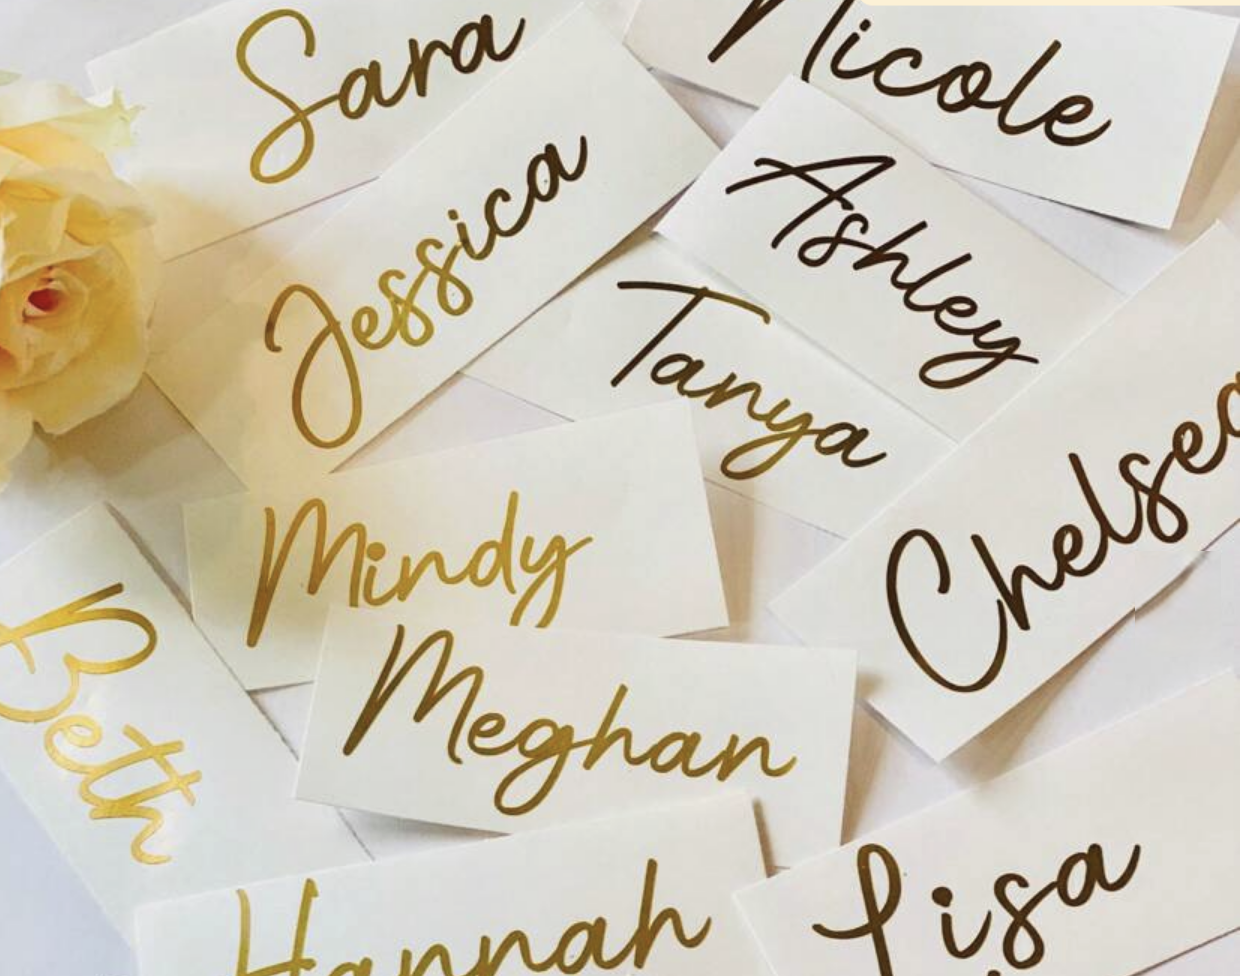 Sara
Nicole
Jessica
Ashley
Tanya
Chelsea
Mindy
Beth
Meghan
Hannah
Lisa